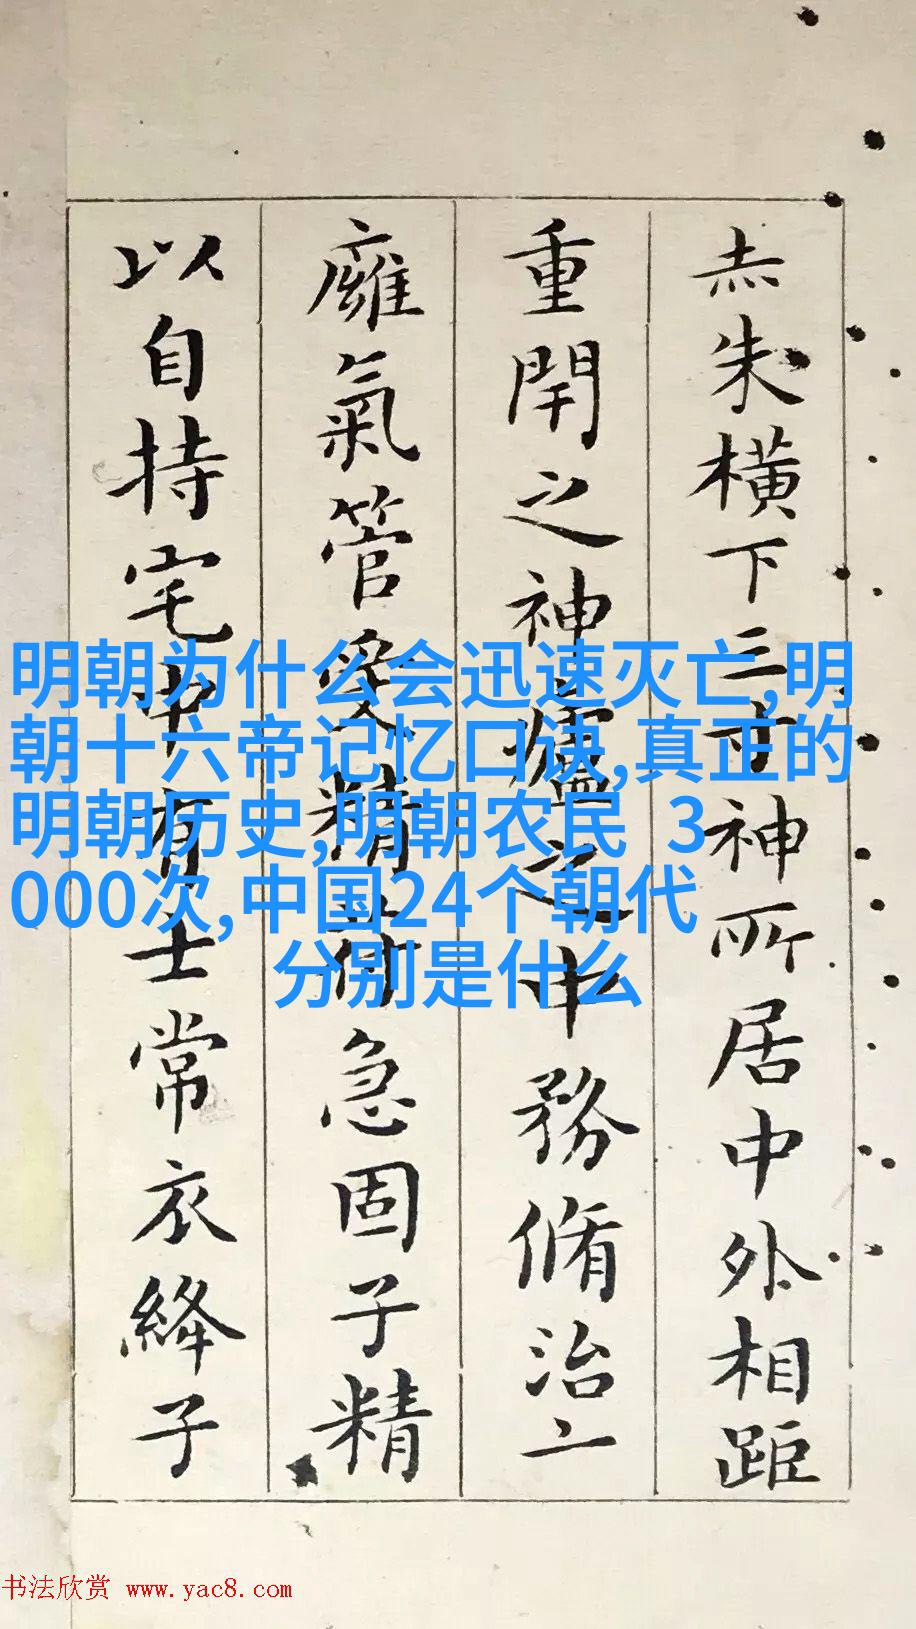 赤朱橫下三寸神所居中外相距
重閇之神廬之中務脩治
廱氣管受精符急固子精
以自持宅中有士常衣絳子
明朝为什么会迅速灭亡,明
朝十六帝记忆口诀,真正的
明朝历史,明朝农民 3
000次,中国24个朝代
分别是什么
书法欣赏 www.yac8.com